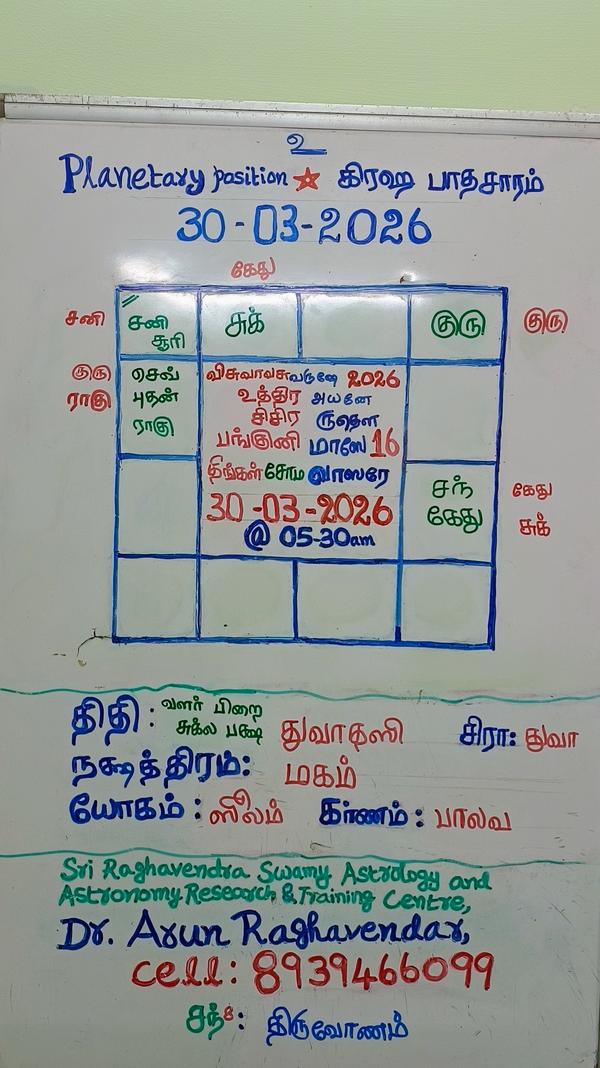 உ
Planetary position ☆ கிரஹ பாதசாரம்
30-03-2026
கேது
சனி
சனி
சூரி
சுக்
குரு
குரு
குரு
ராகு
செவ்
புதன்
ராகு
விசுவாவசுவருஷே 2026
உத்திர அயனே
சிசிர ருதௌ
பங்குனி மாஸே 16
திங்கள் சோம வாஸரே
30-03-2026
@ 05-30am
சந்
கேது
கேது
சுக்
திதி: வளர் பிறை
சுக்ல பக்ஷ துவாதஸி சிரா: துவா
நக்ஷத்திரம்: மகம்
யோகம்: ஸூலம் கரணம்: பாலவ
Sri Raghavendra Swamy Astrology and
Astronomy Research & Training Centre,
Dr. Arun Raghavendar,
cell: 8939466099
சந்8: திருவோணம்